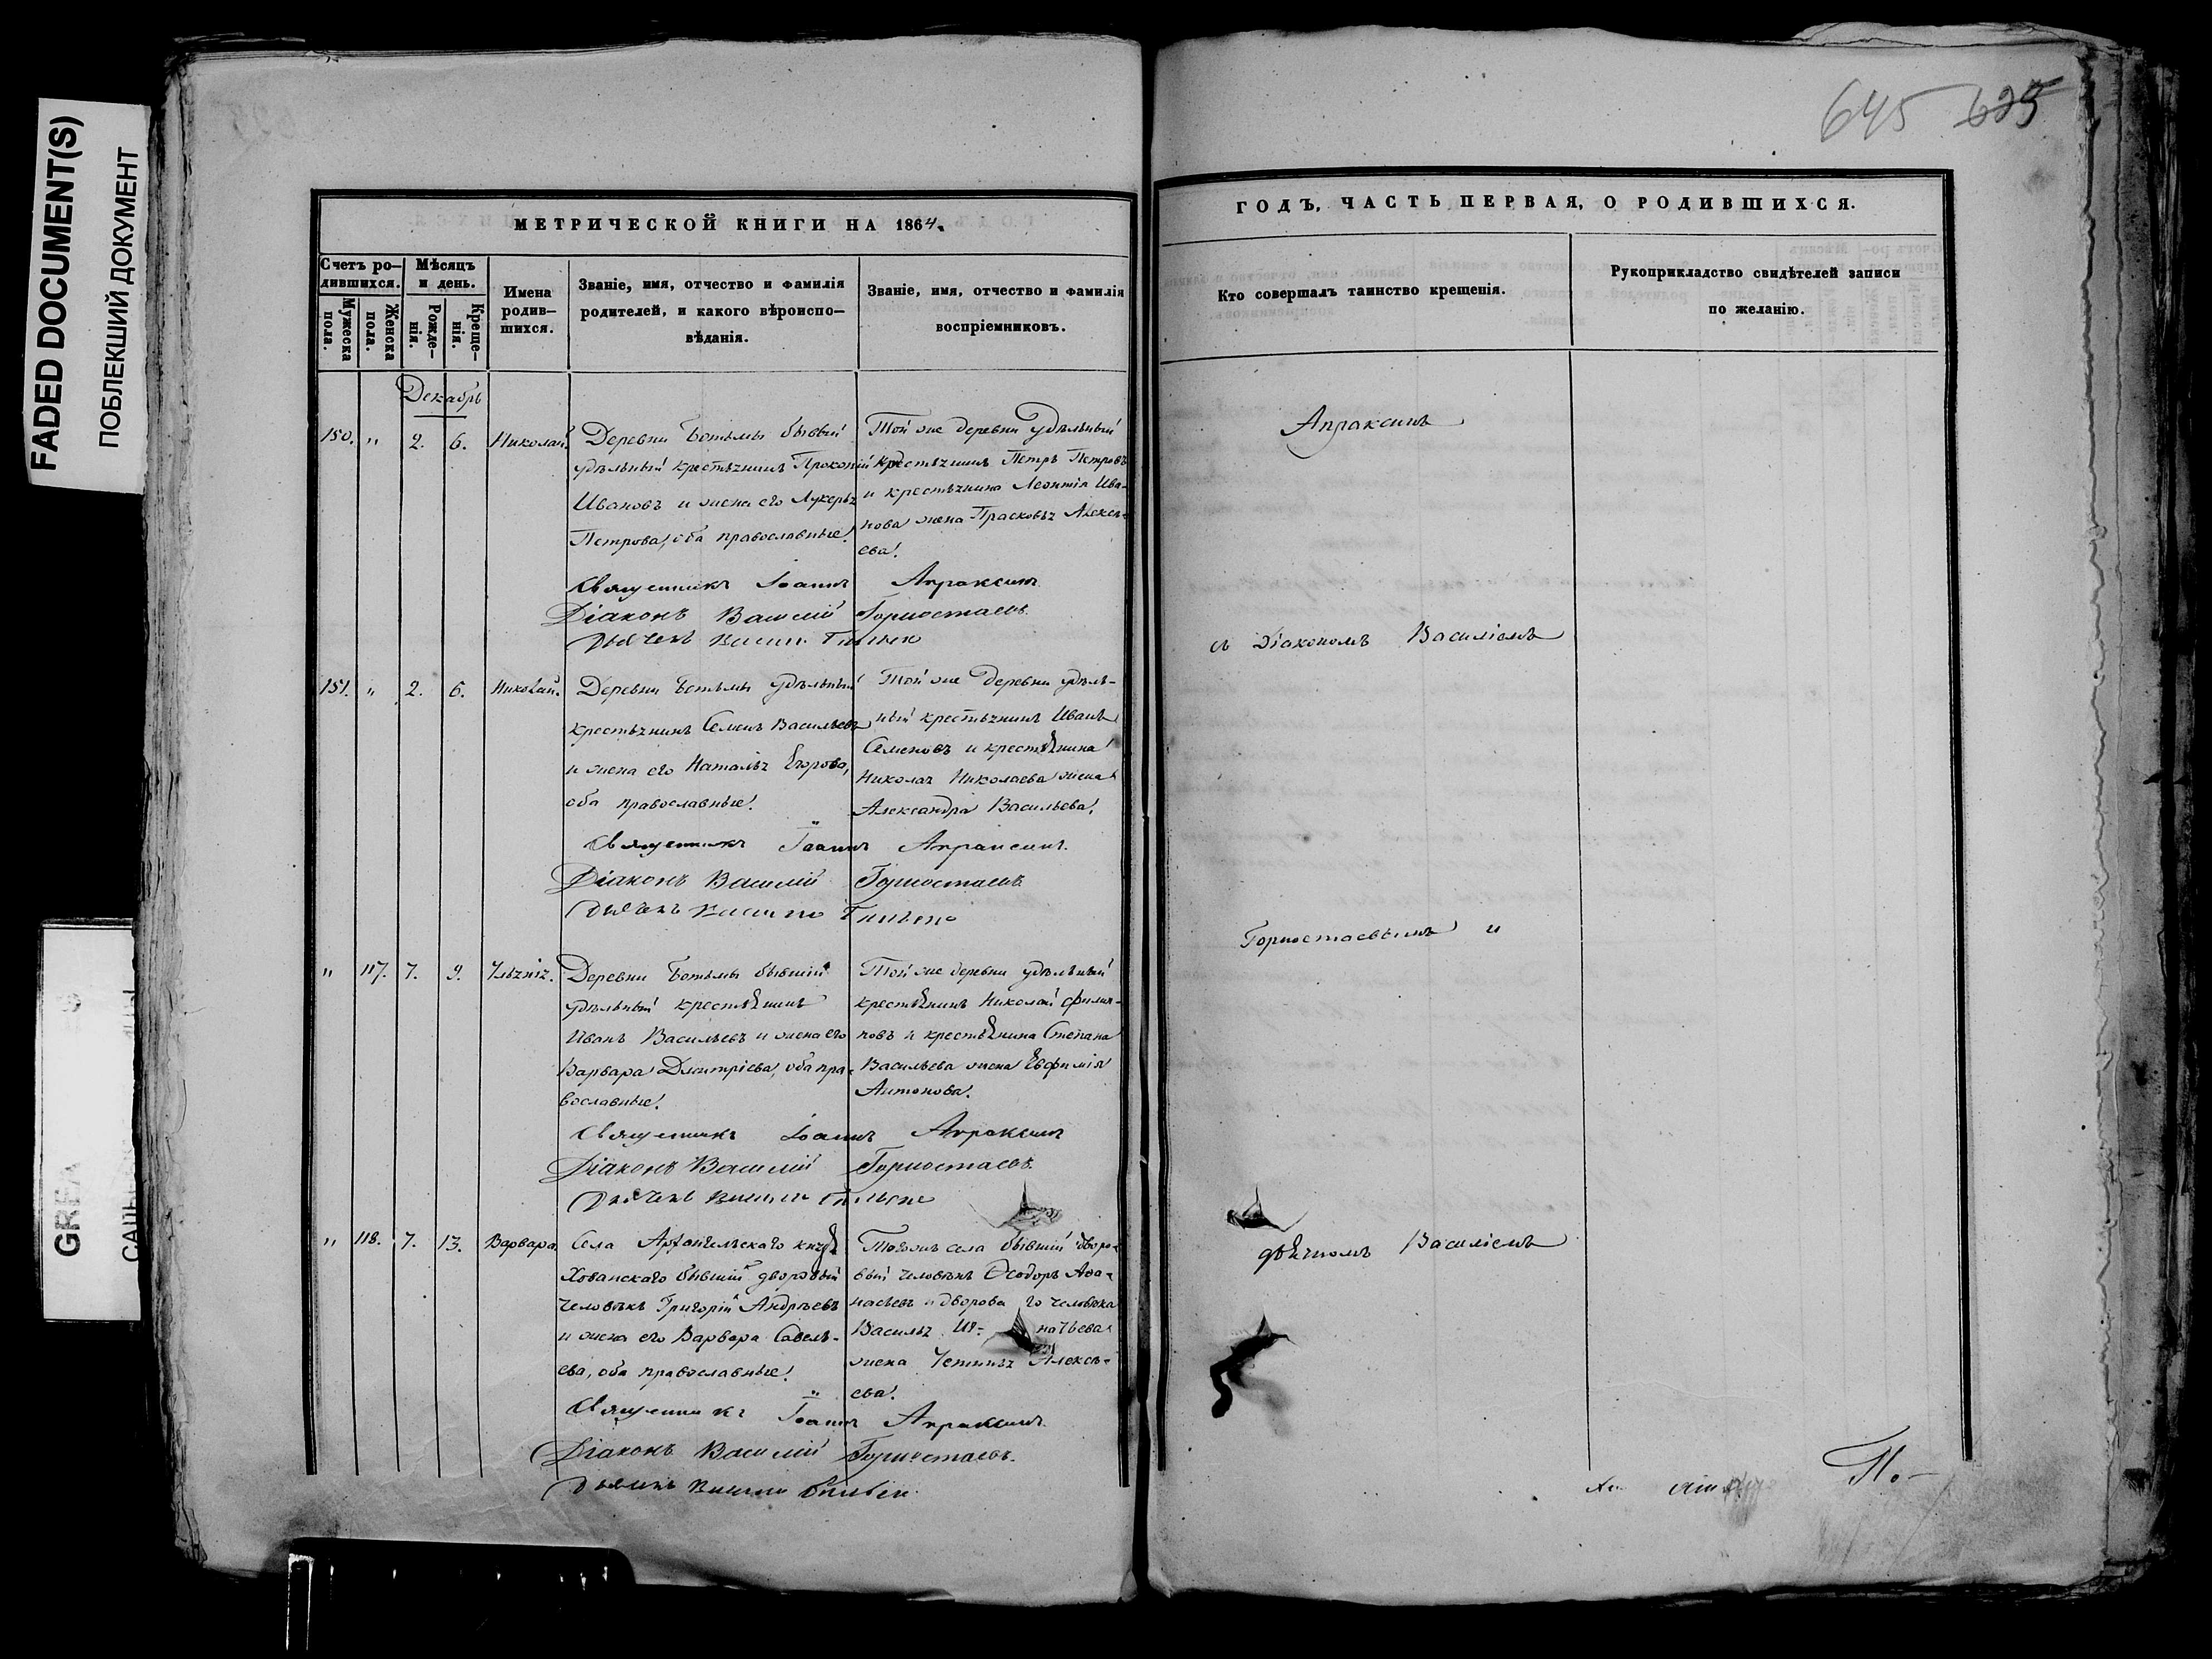 FADED DOCUMENT(S)
ПОБЛЕКШИЙ ДОКУМЕНТ
645 625
МЕТРИЧЕСКОЙ КНИГИ НА 1864.
Счетъ ро-
дившихся.
Мѣсяцъ
и день.
Мужеска
пола.
Женска
пола.
Рожде-
нія.
Креще-
нія.
Имена
родив-
шихся.
Званіе, имя, отчество и фамилія
родителей, и какого вѣроиспо-
вѣданія.
Званіе, имя, отчество и фамилія
воспріемниковъ.
Декабрь
150. " 2. 6. Николай.
Деревни Ботьмы бывый
удѣльный крестьянинъ Прокопій
Ивановъ и жена его Лукерья
Петрова, оба православные.
Той же деревни удѣльный
крестьянинъ Петръ Петровъ
и крестьянина Леонтія Ива-
нова жена Прасковья Алексѣ-
ева.
Священникъ Іоаннъ Апраксинъ
Діаконъ Василій Горностаевъ.
Дьячекъ
151. " 2. 6. Николай.
Деревни Ботьмы удѣльный
крестьянинъ Семенъ Васильевъ
и жена его Наталья Егорова,
оба православные.
Той же деревни удѣль-
ный крестьянинъ Иванъ
Семеновъ и крестьянина
Николая Николаева жена
Александра Васильева.
Священникъ Іоаннъ Апраксинъ.
Діаконъ Василій Горностаевъ.
Дьячекъ
" 117. 7. 9. Ульянія.
Деревни Ботьмы бывшій
удѣльный крестьянинъ
Иванъ Васильевъ и жена его
Варвара Дмитріева, оба пра-
вославные.
Той же деревни удѣльный
крестьянинъ Николай Филип-
повъ и крестьянина Степана
Васильева жена Евфимія
Антонова.
Священникъ Іоаннъ Апраксинъ
Діаконъ Василій Горностаевъ.
Дьячекъ
" 118. 7. 13. Варвара.
Села Архангельскаго князя
Хованскаго бывшій дворовый
человѣкъ Григорій Андреевъ
и жена его Варвара Савель-
ева, оба православные.
Тогожъ села бывшій дворо-
вый человѣкъ Ѳеодоръ Аѳа-
насьевъ и дворова го человѣка
Василья Иг- натьева
жена Устинья Алексѣ-
ева.
Священникъ Іоаннъ Апраксинъ.
Діаконъ Василій Горностаевъ.
Дьячекъ
ГОДЪ, ЧАСТЬ ПЕРВАЯ, О РОДИВШИХСЯ.
Кто совершалъ таинство крещенія.
Рукоприкладство свидѣтелей записи
по желанію.
Апраксинъ
съ Діакономъ Василіемъ
Горностаевымъ и
дьячкомъ Василіемъ